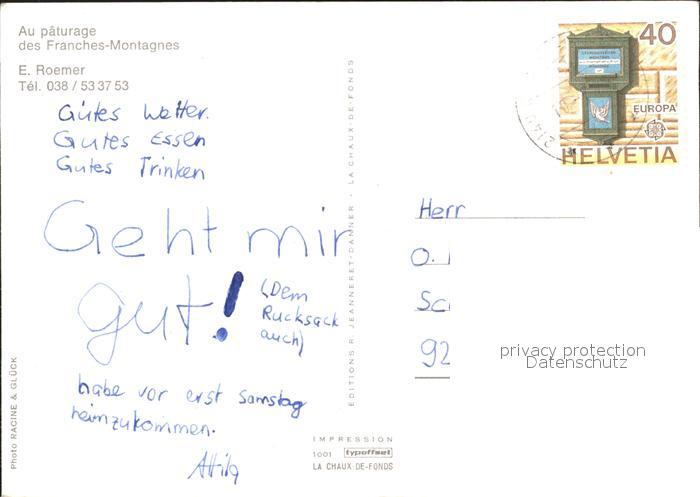 Au pâturage
des Franches-Montagnes
E. Roemer
Tél. 038 / 53 37 53
Gutes Wetter.
Gutes Essen
Gutes Trinken
Geht mir
gut!
(Dem
Rucksack
auch)
habe vor erst Samstag
heimzukommen.
Attila
Photo RACINE & GLÜCK
EDITIONS R. JEANNERET-DANNER - LA CHAUX-DE-FONDS
IMPRESSION
1001 typoffset
LA CHAUX-DE-FONDS
40
EUROPA
HELVETIA
Herr
O.
Sc
92
privacy protection
Datenschutz